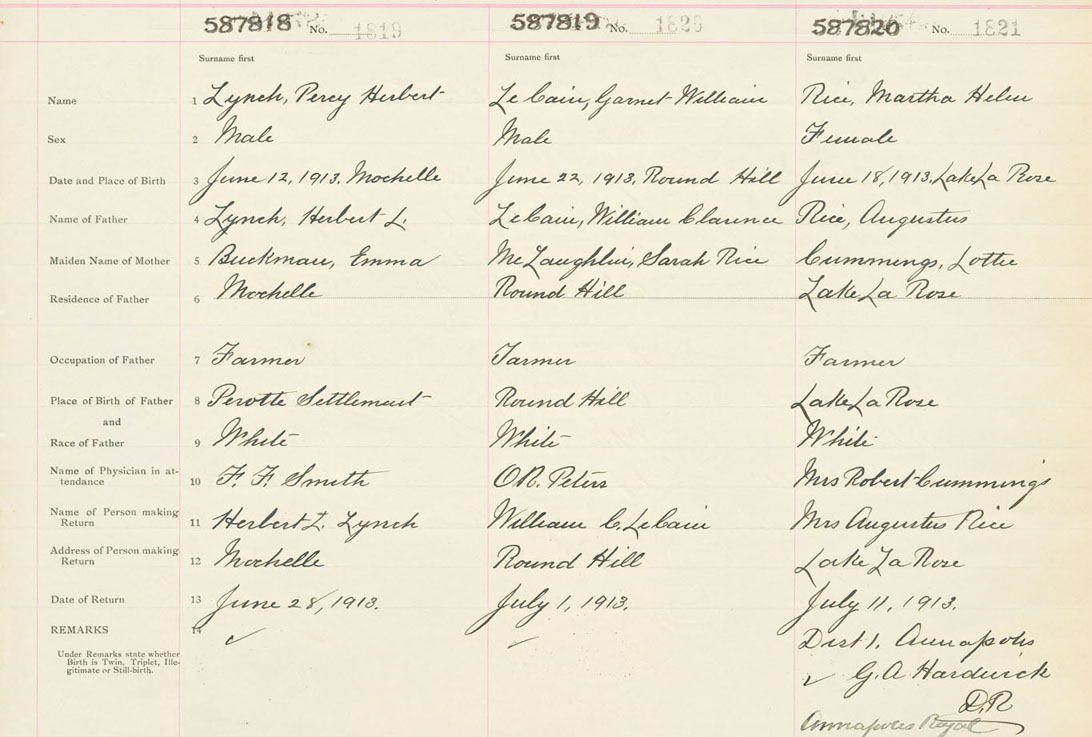 587818 No. 1819 587819 No. 1820 587820 No. 1821
Surname first Surname first Surname first
Name 1 Lynch, Percy Herbert LeCain, Garnet William Rice, Martha Helen
Sex 2 Male Male Female
Date and Place of Birth 3 June 12, 1913. Mochelle June 22, 1913. Round Hill June 18, 1913, Lake La Rose
Name of Father 4 Lynch, Herbert L. LeCain, William Clarence Rice, Augustus
Maiden Name of Mother 5 Buckman, Emma McLaughlin, Sarah Rice Cummings, Lottie
Residence of Father 6 Mochelle Round Hill Lake La Rose
Occupation of Father 7 Farmer Farmer Farmer
Place of Birth of Father 8 Perotte Settlement Round Hill Lake La Rose
and
Race of Father 9 White White White
Name of Physician in at-
tendance 10 F. F. Smith O.R. Peters Mrs Robert Cummings
Name of Person making
Return 11 Herbert L. Lynch William C. LeCain Mrs Augustus Rice
Address of Person making
Return 12 Mochelle Round Hill Lake La Rose
Date of Return 13 June 28, 1913. July 1, 1913. July 11, 1913.
REMARKS 14 ✓ ✓ Dist 1. Annapolis
Under Remarks state whether
Birth is Twin, Triplet, Ille-
gitimate or Still-birth.
✓ G. A Hardwick
D.R
Annapolis Royal